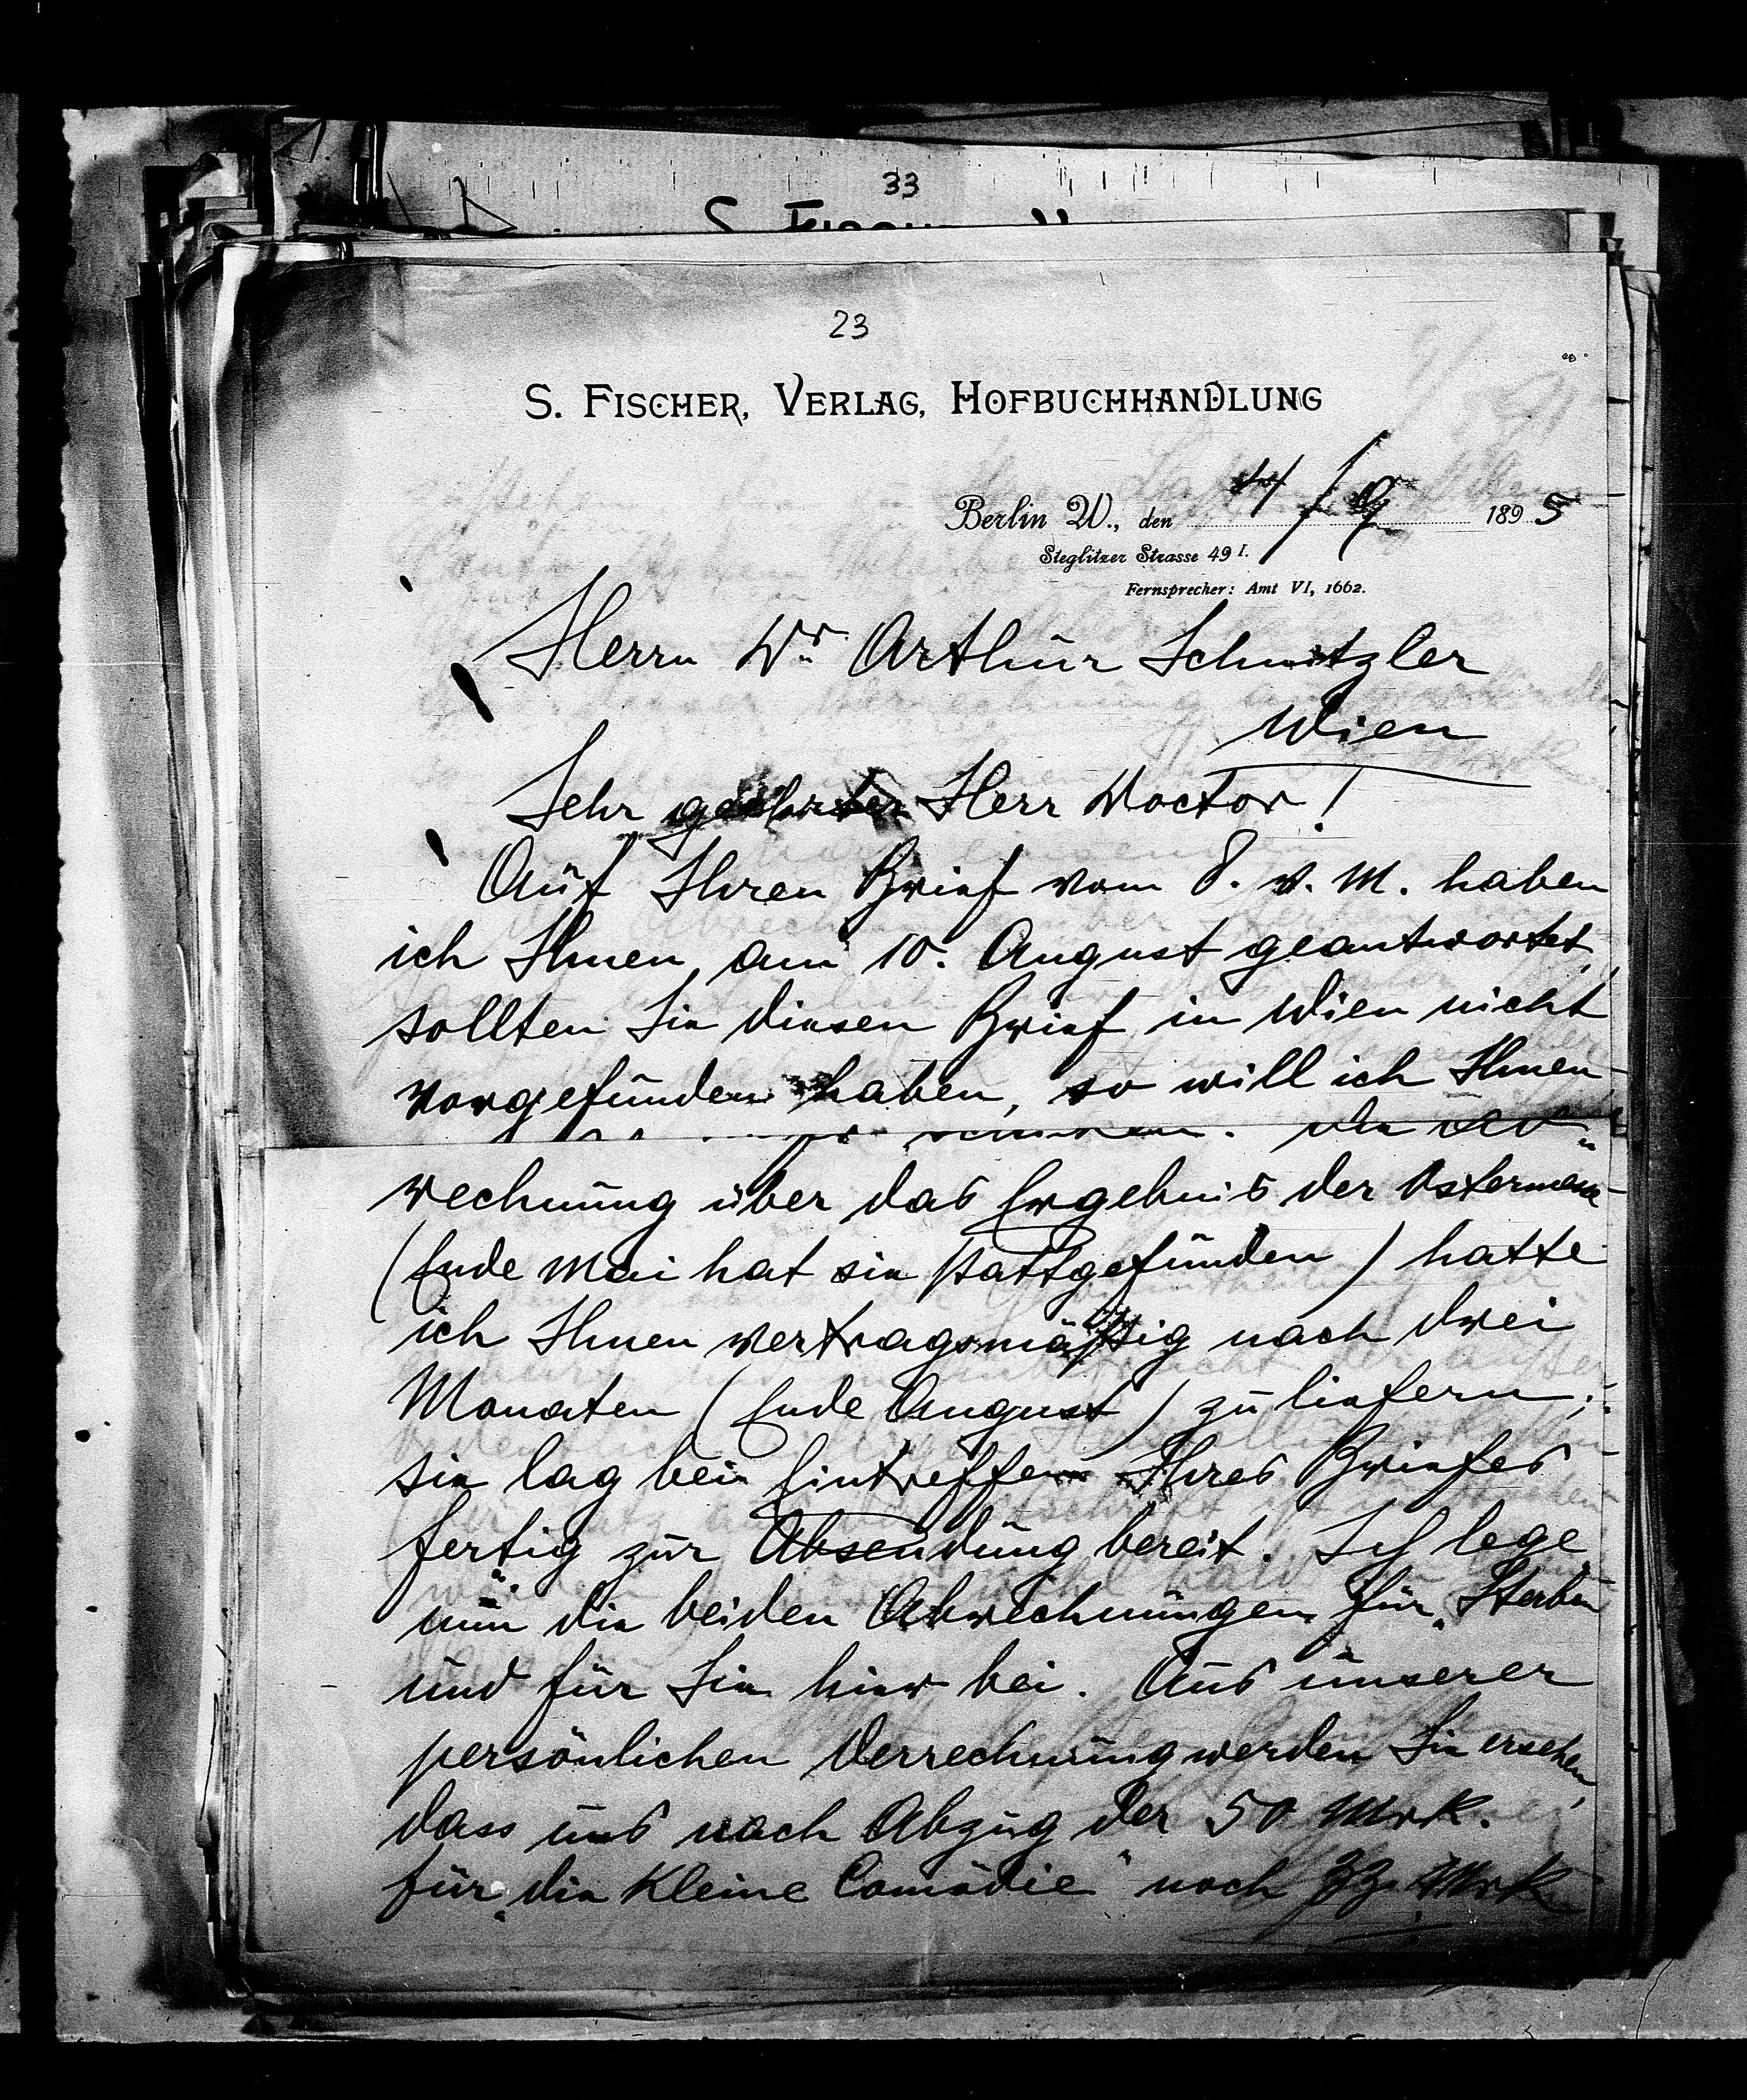 33
23
S. FISCHER, VERLAG, HOFBUCHHANDLUNG
Berlin W., den 4/9 1895
Steglitzer Strasse 49 I.
Fernsprecher: Amt VI, 1662.
Herrn Dr. Arthur Schnitzler
Wien
Sehr geehrter Herr Doctor!
Auf Ihren Brief vom 8. v. M. haben
ich Ihnen am 10. August geantwortet,
sollten Sie diesen Brief in Wien nicht
vorgefunden haben, so will ich Ihnen
rechnung über das Ergebnis der Ostermesse
(Ende Mai hat sie stattgefunden) hatte
ich Ihnen vertragsmäßig nach drei
Monaten (Ende August) zu liefern;
sie lag bei Eintreffen Ihres Briefes
fertig zur Absendung bereit. Ich lege
nun die beiden Abrechnungen für „Sterben
und für Sie hier bei. Aus unserer
persönlichen Verrechnung werden Sie ersehen,
dass uns nach Abzug der 50 Mrk.
für „die Kleine Comödie“ noch Mrk.